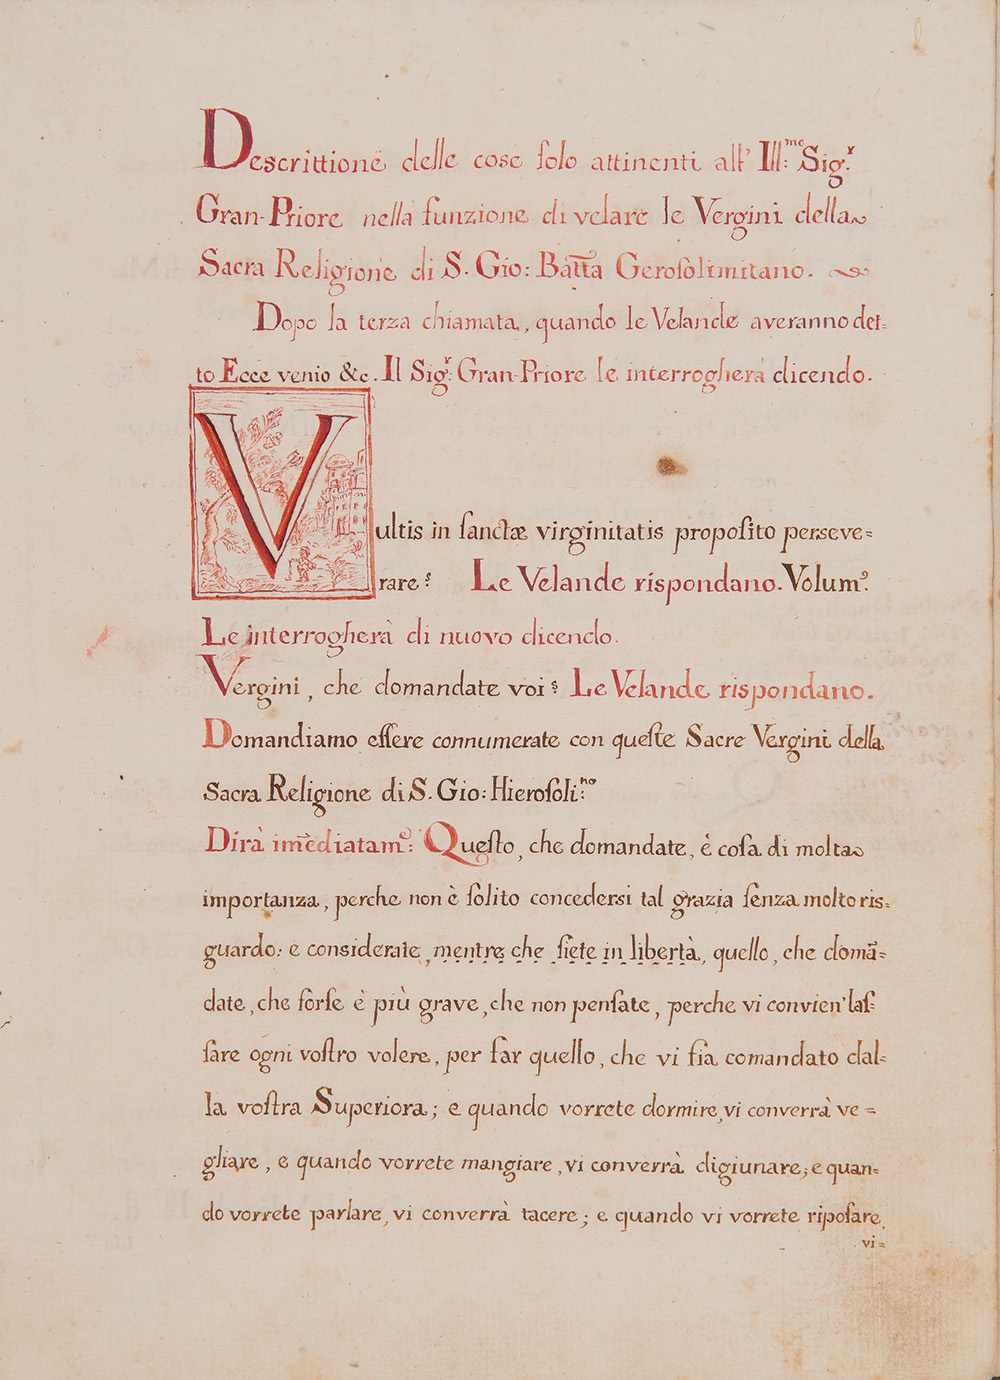 Descrittione delle cose ſolo attinenti all' Ill:mo Sig.r
Gran-Priore nella funzione di velare le Vergini della
Sacra Religione di S. Gio: Batta Geroſolimitano.
Dopo la terza chiamata, quando le Velande averanno det=
to Ecce venio &c. Il Sig.r Gran-Priore le interrogherà dicendo.
Vultis in ſanctæ virginitatis propoſito perseve=
rare? Le Velande rispondano. Volum9
Le interrogherà di nuovo dicendo.
Vergini, che domandate voi? Le Velande rispondano.
Domandiamo eſſere connumerate con queſte Sacre Vergini della
Sacra Religione di S. Gio: Hieroſoli:no
Dirà imēdiatam:e Queſto, che domandate, è coſa di molta
importanza, perche non è ſolito concedersi tal grazia ſenza molto ris=
guardo: e considerate, mentre che ſiete in libertà, quello, che domā=
date, che forſe è più grave, che non penſate, perche vi convien' laſ=
ſare ogni voſtro volere, per far quello, che vi ſia comandato dal=
la voſtra Superiora; e quando vorrete dormire, vi converrà ve=
gliare, e quando vorrete mangiare, vi converrà digiunare; e quan=
do vorrete parlare, vi converrà tacere; e quando vi vorrete ripoſare,
vi=